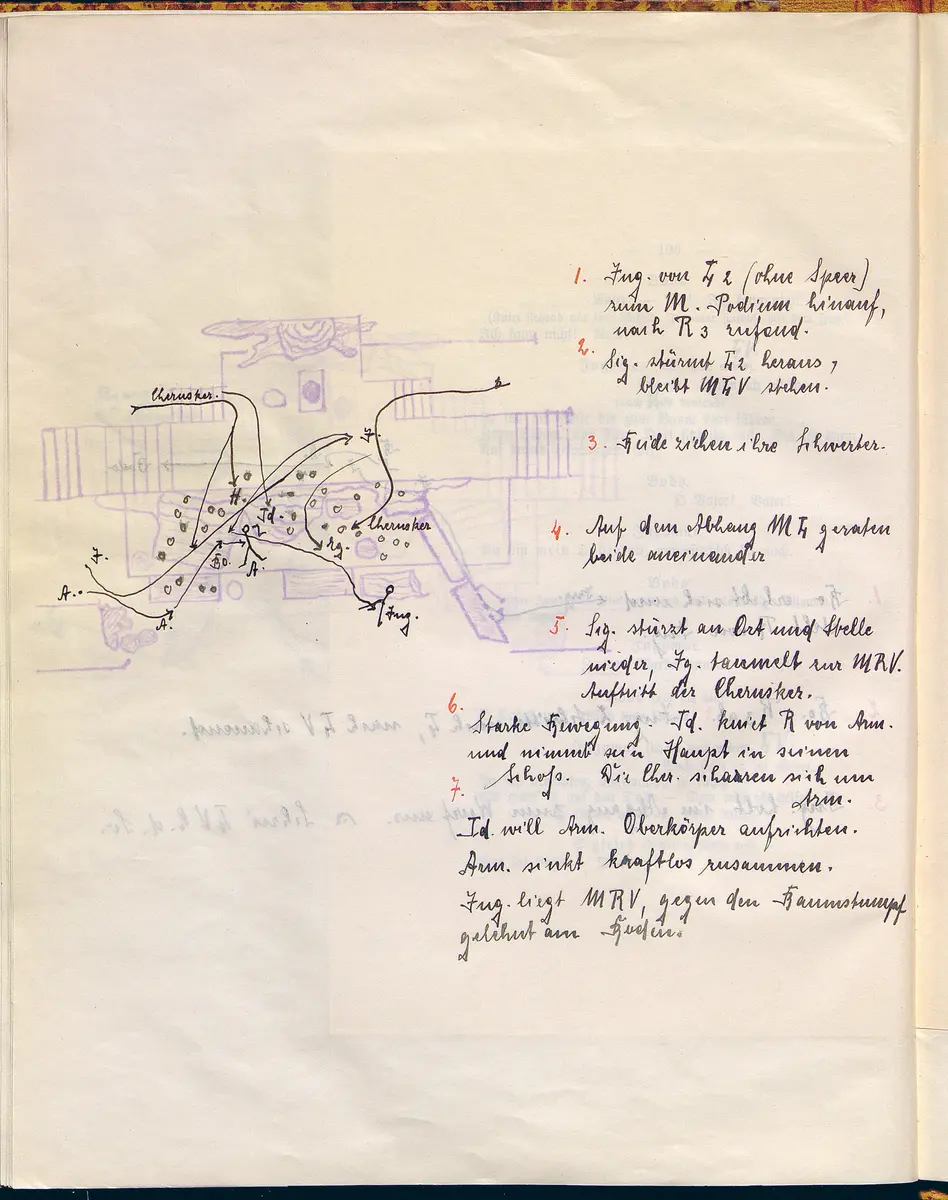 Cherusker.
J.
H.
Id.
Cherusker
Bo.
A.
Sg.
J.
A.
A.
Ing.
1. Ing. von L 2 (ohne Speer)
zum M. Podium hinauf,
nach R 3 rufend.
2. Sig. stürmt L 2 heraus,
bleibt MLV stehen.
3. Beide ziehen ihre Schwerter.
4. Auf dem Abhang ML geraten
beide aneinander
5. Sig. stürzt an Ort und Stelle
nieder, Ig. taumelt zur MRV.
Auftritt der Cherusker.
6.
Starke Bewegung. Id. kniet R von Arm.
und nimmt sein Haupt in seinen
Schoß. Die Cher. scharren sich um
Arm.
7.
Id. will Arm. Oberkörper aufrichten.
Arm. sinkt kraftlos zusammen.
Ing. liegt MRV, gegen den Baumstumpf
gelehnt am Boden.